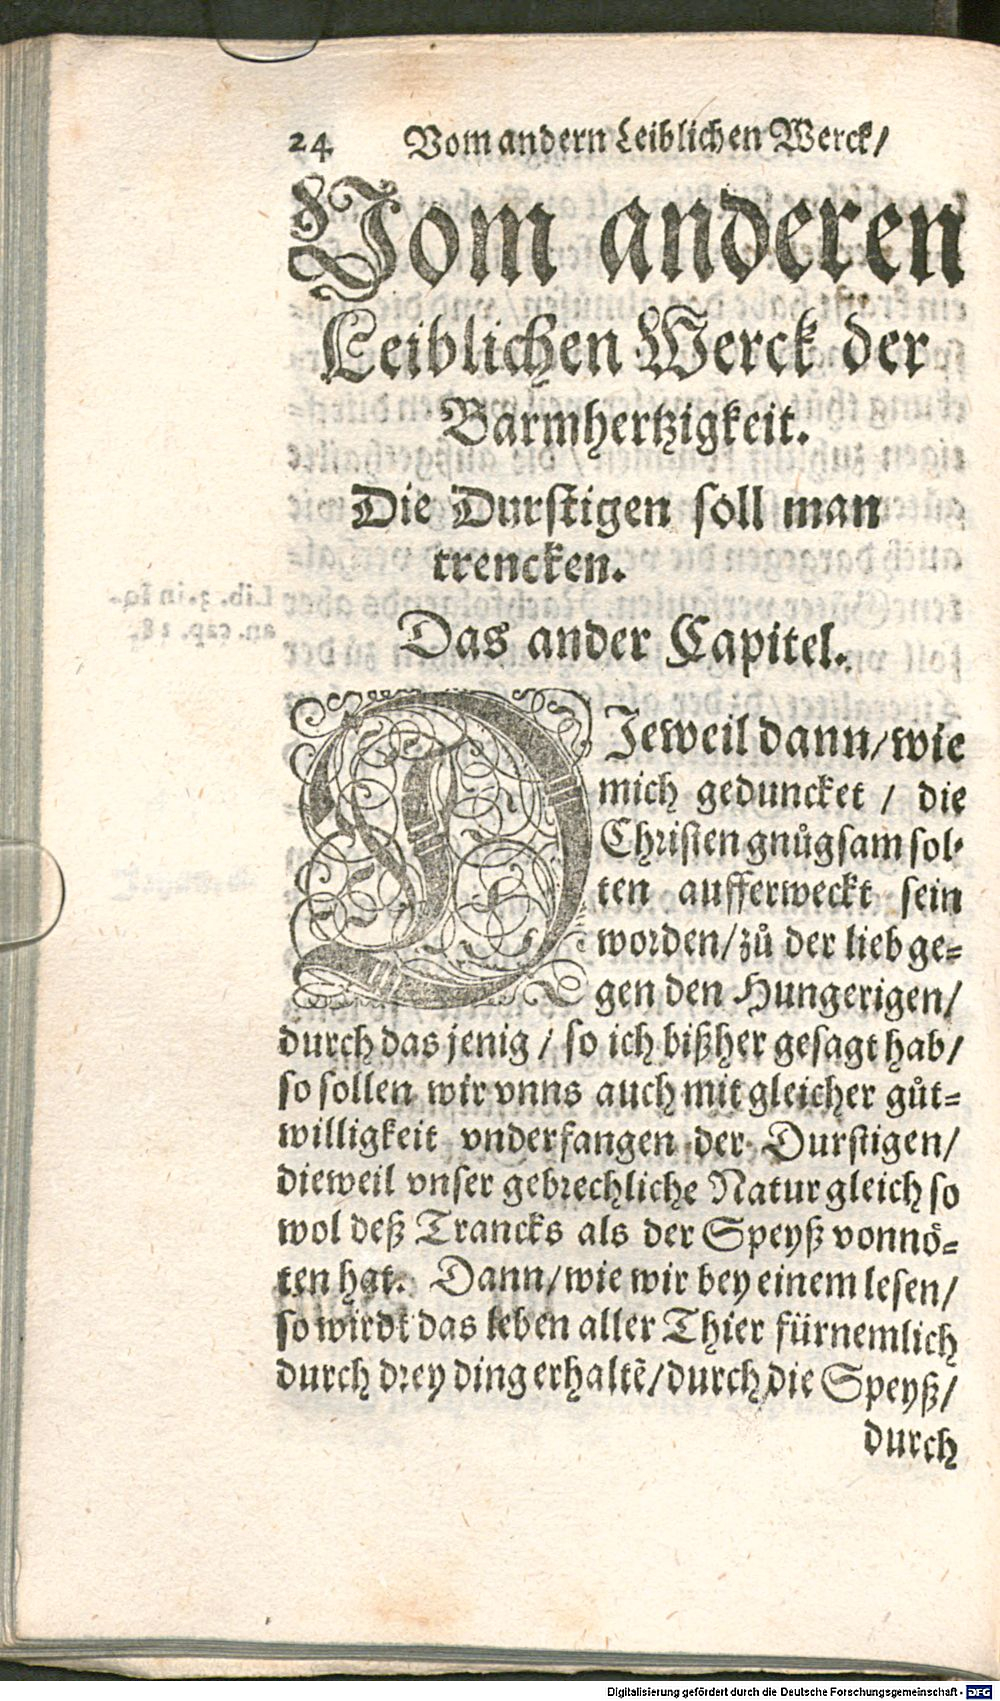 24 Vom andern Leiblichen Werck/
Vom anderen
Leiblichen Werck der
Barmhertzigkeit.
Die Durstigen soll man
trencken.
Das ander Capitel.
DIeweil dann/wie
mich geduncket / die
Christen gnůgsam sol-
ten aufferweckt sein
worden/zů der lieb ge-
gen den Hungerigen/
durch das jenig / so ich bißher gesagt hab/
so sollen wir vnns auch mit gleicher gůt-
willigkeit vnderfangen der Durstigen/
dieweil vnser gebrechliche Natur gleich so
wol deß Trancks als der Speyß vonnö-
ten hat. Dann/wie wir bey einem lesen/
so wirdt das leben aller Thier fürnemlich
durch drey ding erhaltẽ/durch die Speyß/
durch
Digitalisierung gefördert durch die Deutsche Forschungsgemeinschaft - DFG